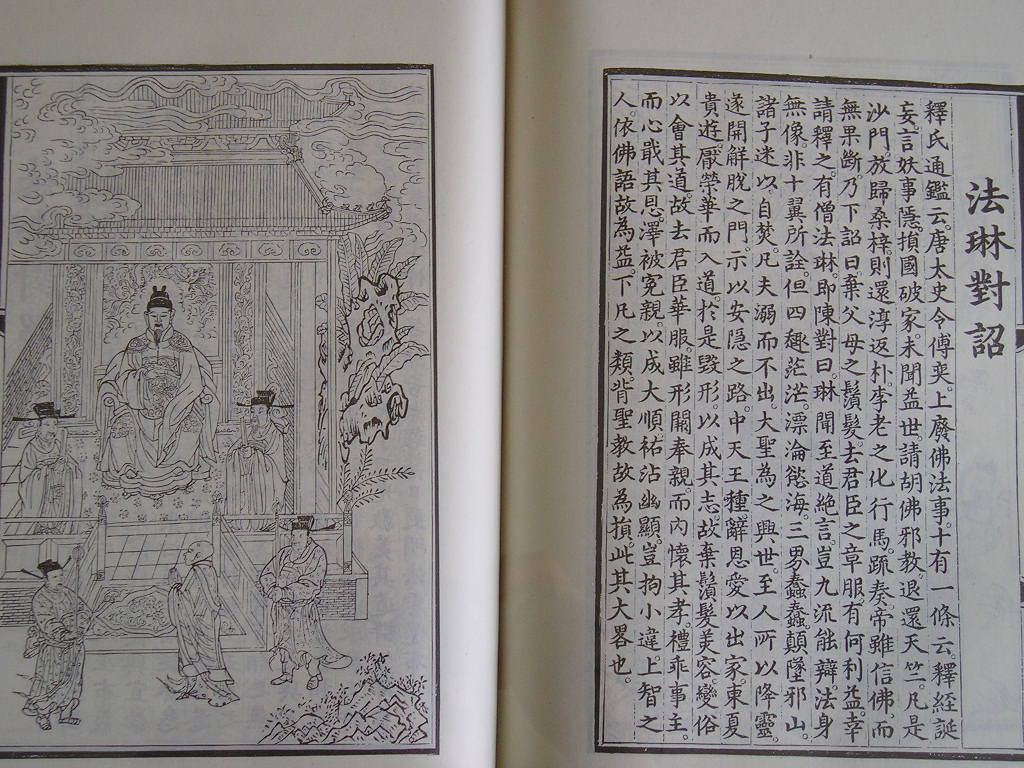 法琳對詔
釋氏通鑑云。唐太史令傅奕。上廢佛法事。十有一條云。釋經誕
妄。言妖事隱。損國破家。未聞益世。請胡佛邪教。退還天竺。凡是
沙門。放歸桑梓。則還淳返朴。李老之化行焉。䟽奏。帝雖信佛。而
無果斷。乃下詔曰。棄父母之鬚髮。去君臣之章服。有何利益。幸
請釋之。有僧法琳。即陳對曰。琳聞至道絕言。豈九流能辯。法身
無像。非十翼所詮。但四趣茫茫。漂淪慾海。三界蠢蠢。顛墜邪山。
諸子迷以自焚。凡夫溺而不出。大聖為之興世。至人所以降靈。
遂開解脫之門。示以安隱之路。中天王種。辭恩愛以出家。東夏
貴遊。厭榮華而入道。於是毀形。以成其志。故棄鬚髮美容。變俗
以會其道。故去君臣華服。雖形闕奉親。而內懷其孝。禮乖事主。
而心戢其恩。澤被冤親。以成大順。祐沾幽顯。豈拘小違。上智之
人。依佛語故為益。下凡之類。背聖教故為損。此其大畧也。